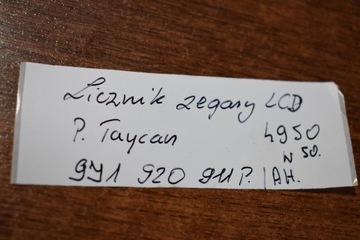 Licznik zegary LCD
P. Taycan 4950
N 50.
9J1 920 911 P. /AH.